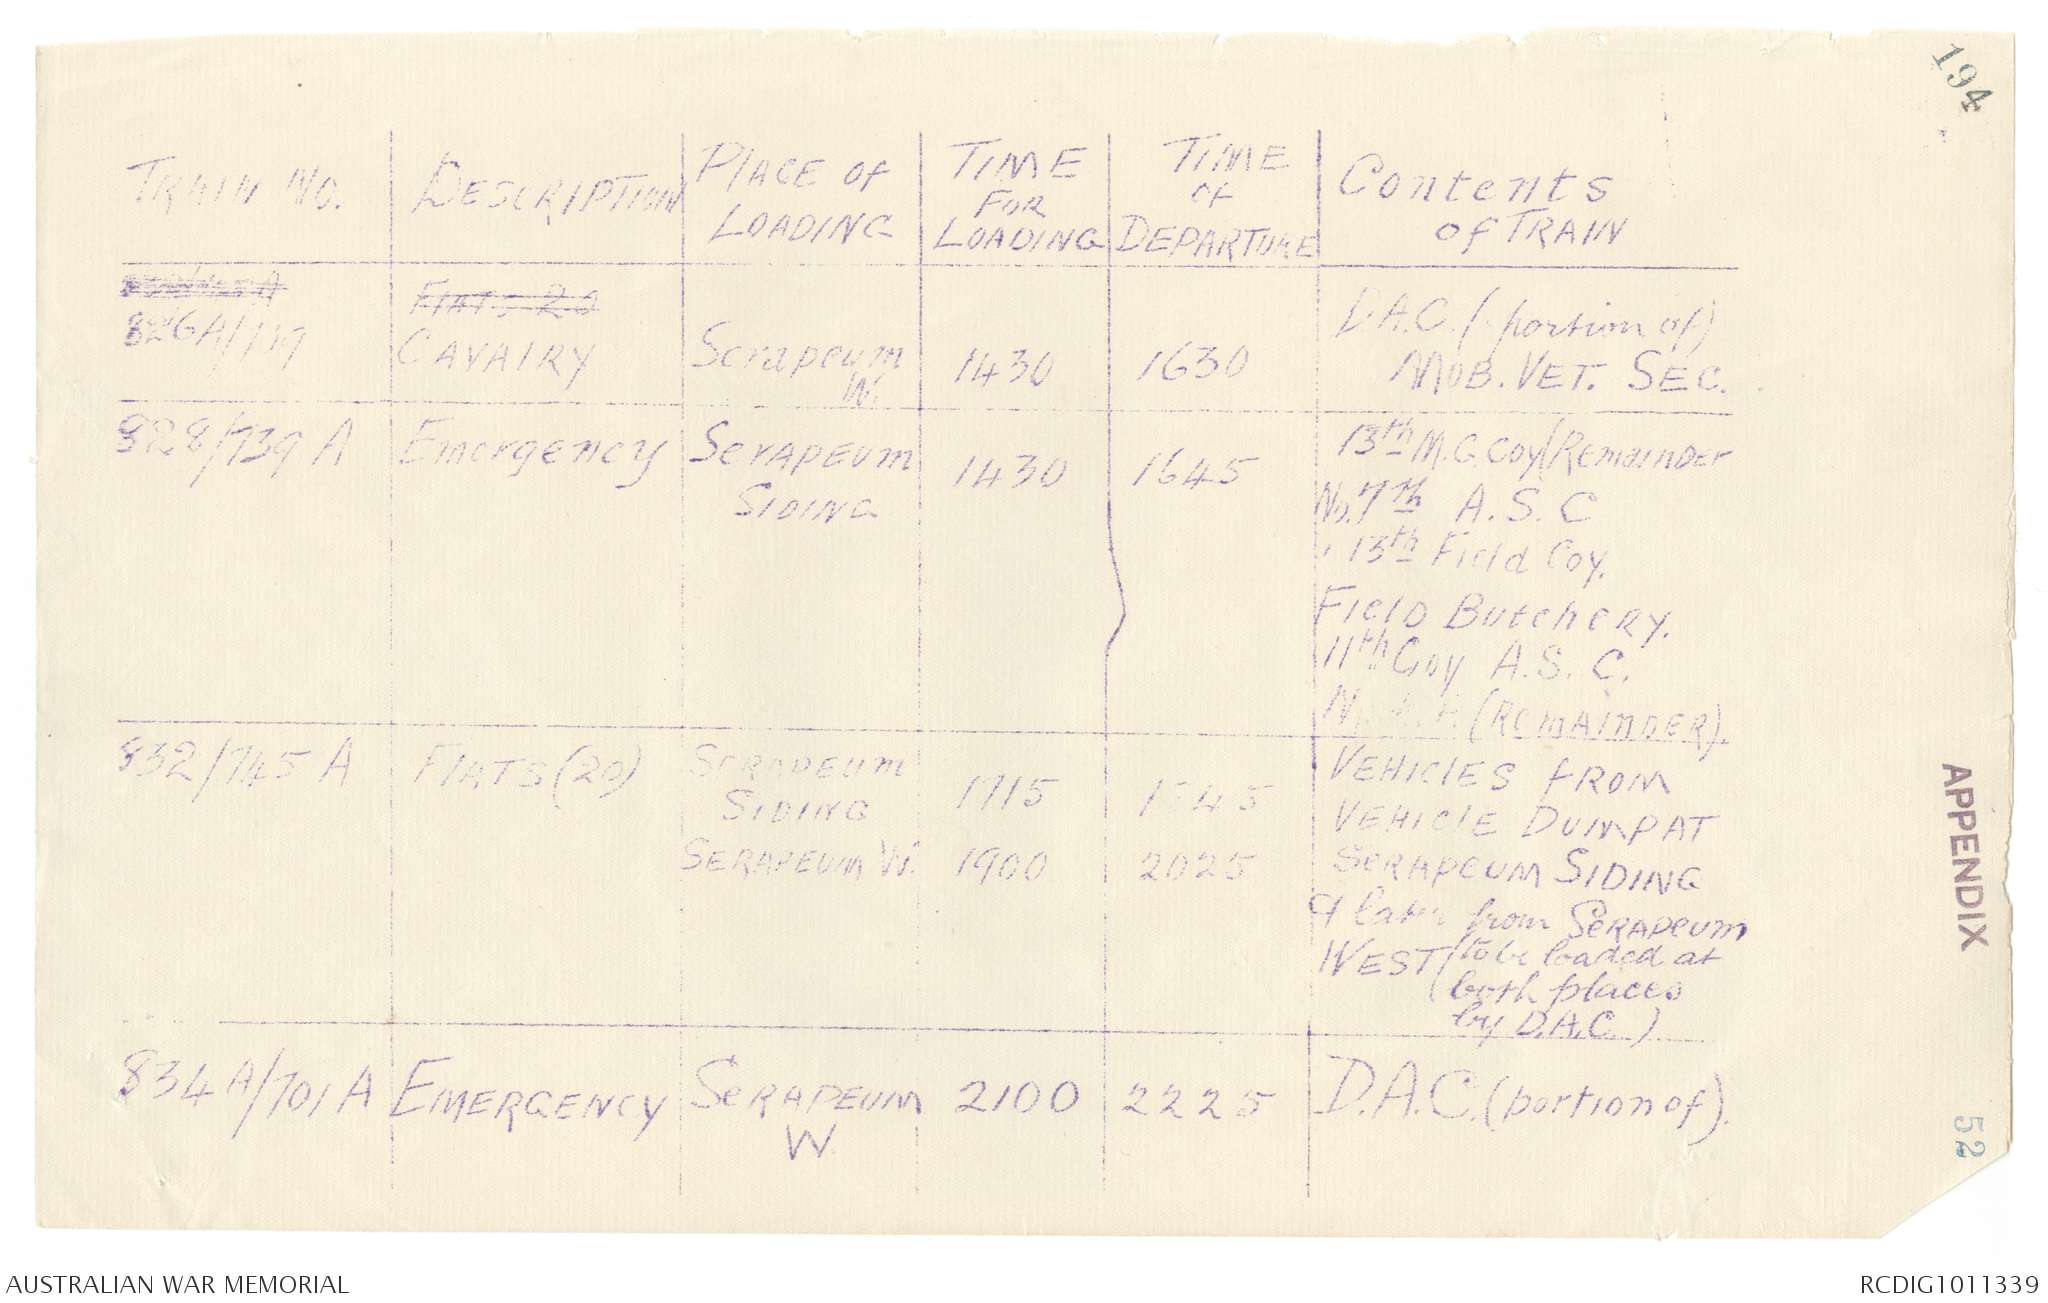 194
TRAIN NO. DESCRIPTION PLACE OF LOADING TIME FOR LOADING TIME OF DEPARTURE Contents of TRAIN
FIATS 20
826A/737 CAVALRY Serapeum W. 1430 1630 D.A.C. (portion of)
MOB. VET. SEC.
828/739 A Emergency SERAPEUM SIDING 1430 1645 13th M.G. Coy (Remainder
No. 7th A.S.C
" 13th Field Coy.
FIELD BUTCHERY.
11th Coy A.S.C.
(REMAINDER).
832/745 A FIATS (20) SERAPEUM SIDING 1715 VEHICLES FROM
VEHICLE DUMP AT
SERAPEUM W. 1900 2025 SERAPEUM SIDING
& later from SERAPEUM
WEST (to be loaded at
both places
by D.A.C.)
834 A/701 A EMERGENCY SERAPEUM W. 2100 2225 D.A.C. (portion of).
APPENDIX
52
AUSTRALIAN WAR MEMORIAL
RCDIG1011339